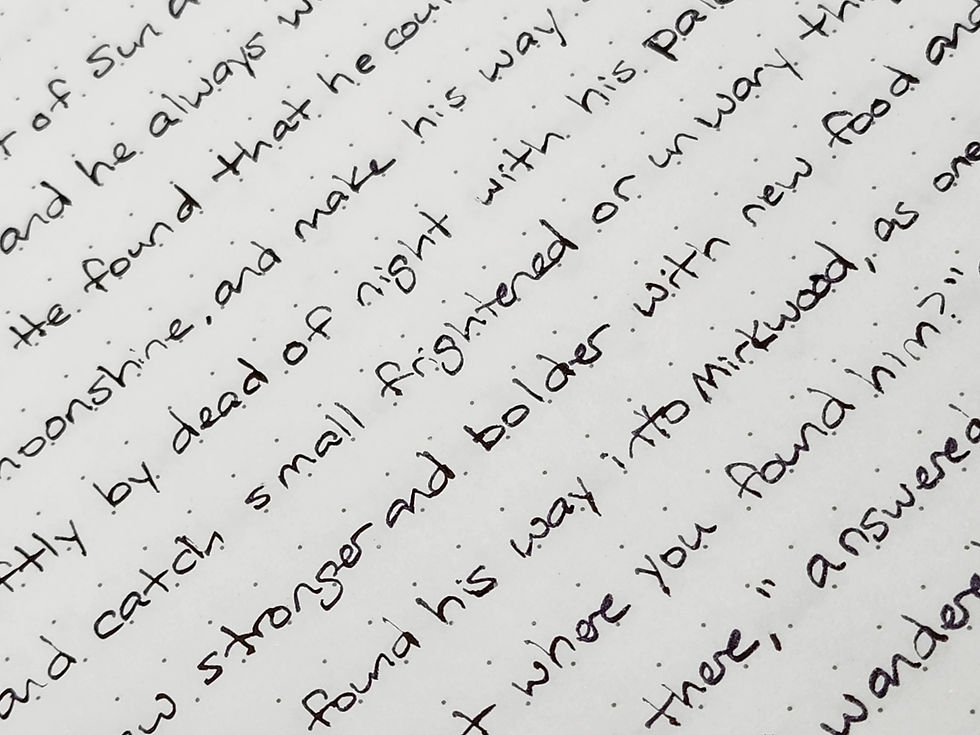 of Sun
and he always
He found that he
moonshine, and make his way
by dead of night with his
and catch small frightened or unwary
stronger and bolder with new food and
found his way into Mirkwood, as one
where you found him?"
there," answered